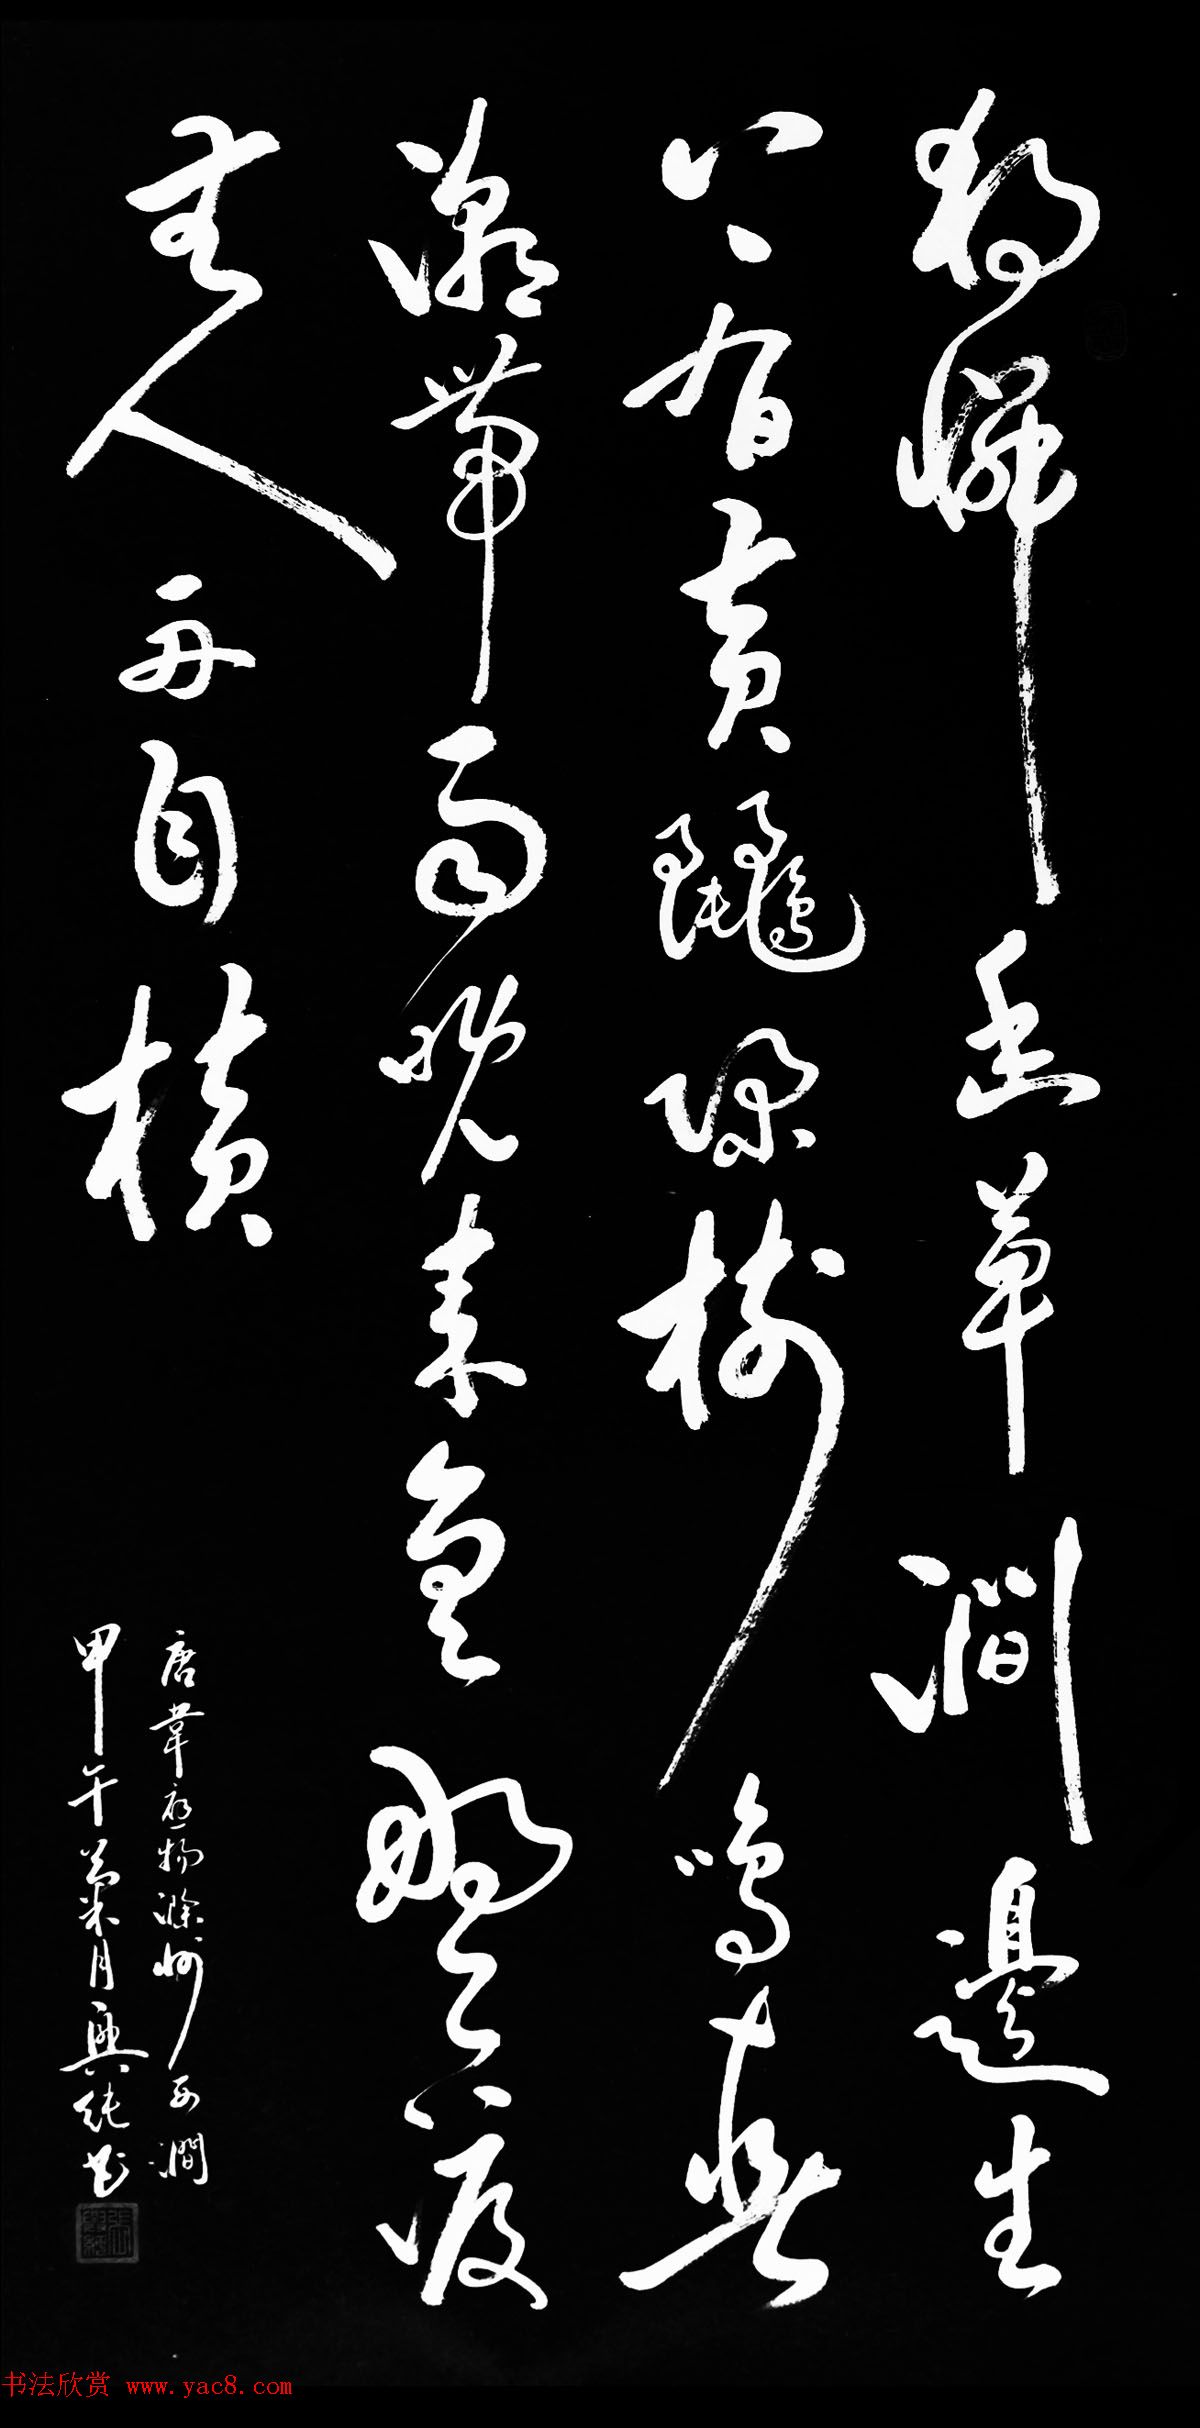 獨憐幽草澗邊生
上有黃鸝深樹鳴春
潮帶雨晚來急野渡
無人舟自橫
唐韋應物滁州西澗
甲午菊月興純書
书法欣赏 www.yac8.com